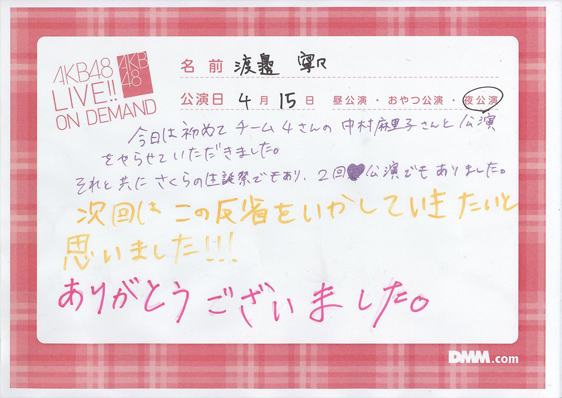 AKB48
LIVE!!
ON DEMAND
AKB
48
名前 渡邊 寧々
公演日 4月15日 昼公演・おやつ公演・夜公演
今日は初めてチーム4さんの中村麻里子さんと公演
をやらせていただきました。
それと共にさくらの生誕祭でもあり、2回♥公演でもありました。
次回はこの反省をいかしていきたいと
思いました!!!
ありがとうございました。
DMM.com